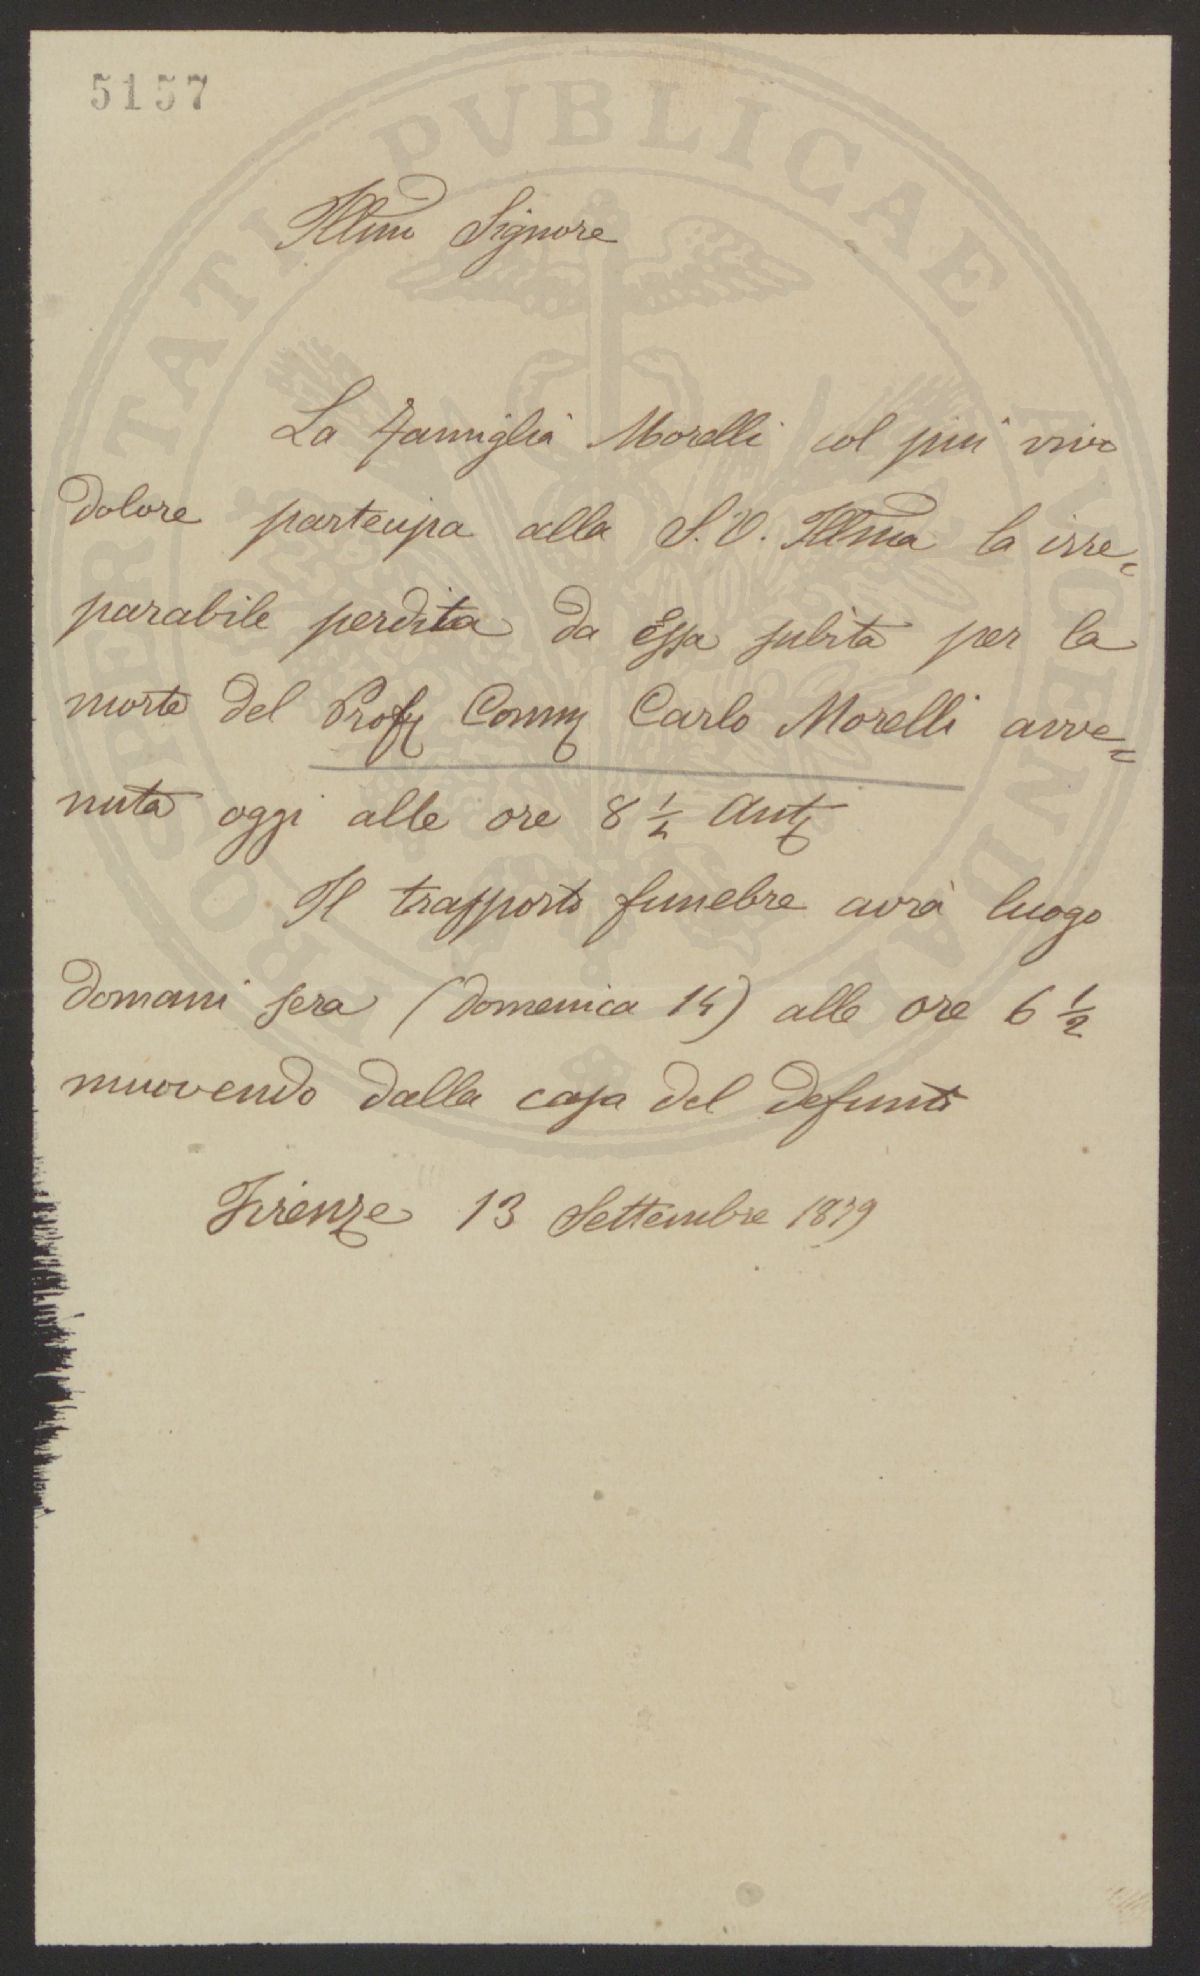 5157
Illmo Signore
La Famiglia Morelli col più vivo
dolore partecipa alla S.V. Illma la irre=
parabile perdita da Essa subita per la
morte del Prof. Comm. Carlo Morelli avve=
nuta oggi alle ore 8 ½ Ant.
Il trasporto funebre avrà luogo
domani sera (domenica 14) alle ore 6 ½
muovendo dalla casa del defunto
Firenze 13 Settembre 1879
PROSPERITATI PVBLICAE AVGENDAE